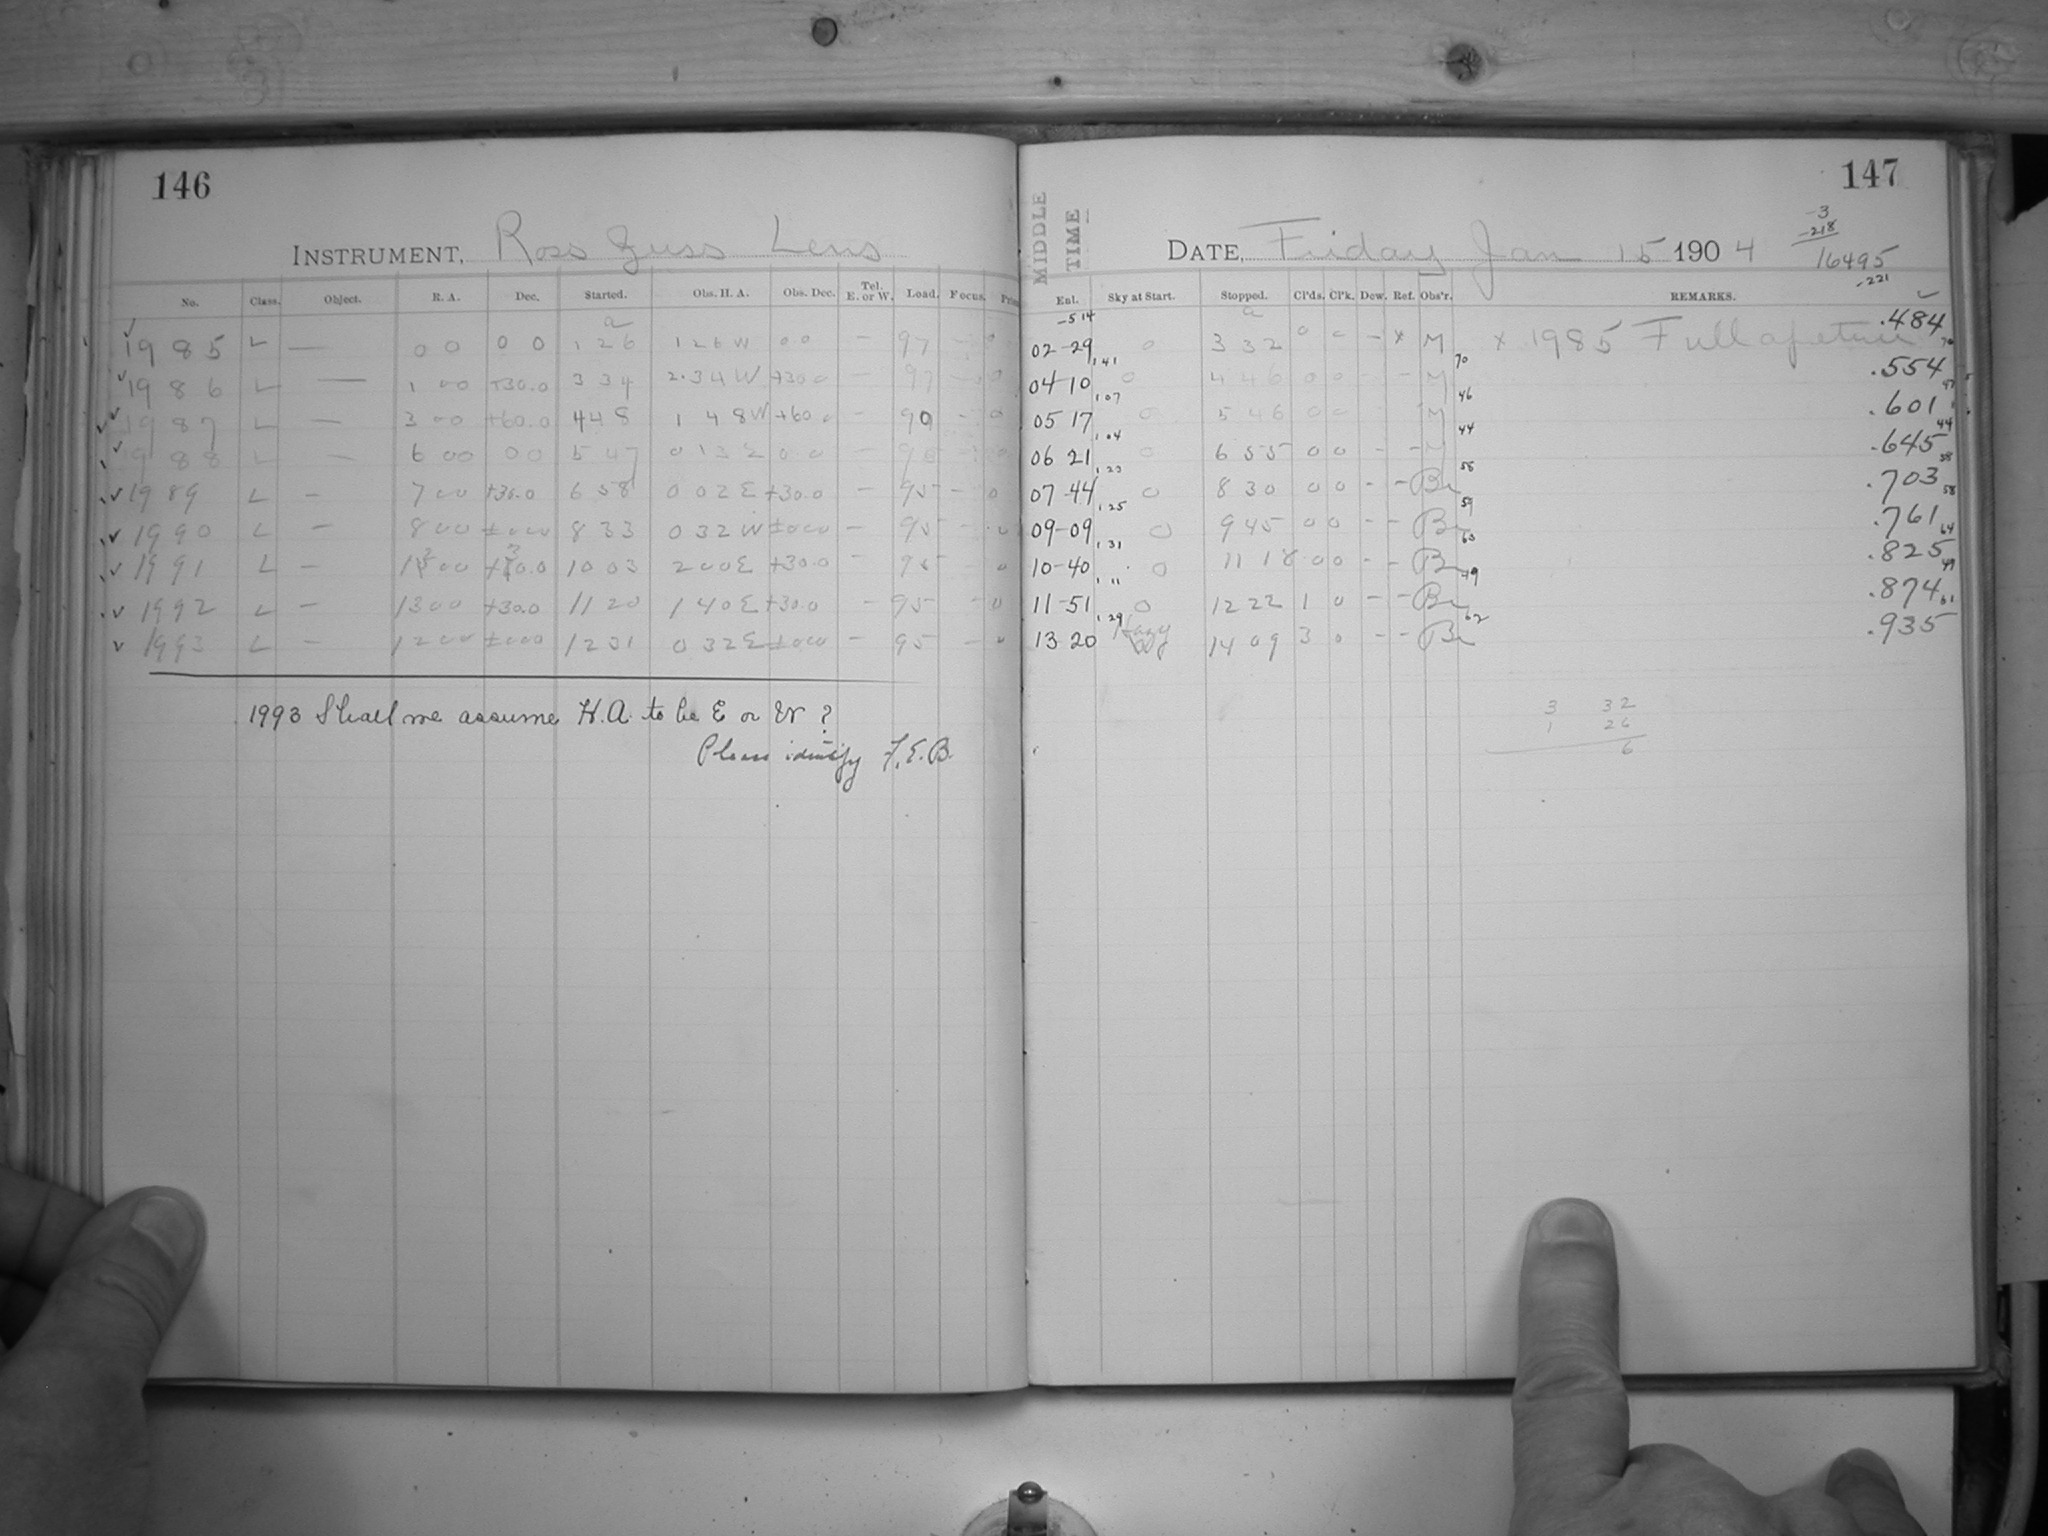 146
INSTRUMENT, Ross Zuss Lens
No. Class. Object. R. A. Dec. Started. Obs. H. A. Obs. Dec. Tel. E. or W. Load. Focus.
1985 L — 00 00 126 126W 00 — 97
1986 L — 1 00 +30.0 334 2.34W +300 — 97
1987 L — 300 +60.0 448 148W +60 — 90
1988 L — 600 00 547 013E 00 —
1989 L — 700 +30.0 658 002E +30.0 — 95 — 0
1990 L — 800 ±000 833 032W ±000 — 95
1991 L — 00 1003 200E +30.0 — 95
1992 L — 1300 +30.0 1120 140E +30.0 — 95 — 0
1993 L — 1200 ±000 1231 032E ±000 — 95
1993 Shall we assume H.A. to be E or W?
Please identify F.E.B.
147
MIDDLE TIME
DATE, Friday Jan 15 1904
-3
-218
16495
-221
Ent. Sky at Start. Stopped. Cl'ds. Cl'k. Dew. Ref. Obs'r. REMARKS.
-514
02-29 0 332 0 – – x M x 1985 Full apeture .484
141 70
04-10 0 446 0 0 – – M .554
107 46
05 17 0 546 0 0 M .601
104 44
06 21 0 655 0 0 – – M .645
123 58
07-44 0 830 0 0 – – Br .703
125 59
09-09 0 945 0 0 – – Br .761
131
10-40 0 1118 0 0 – – Br .825
49
11-51 0 1222 1 0 – – Br .874
129 62
13 20 Hazy 1409 3 0 – – Br .935
3 32
1 26
6